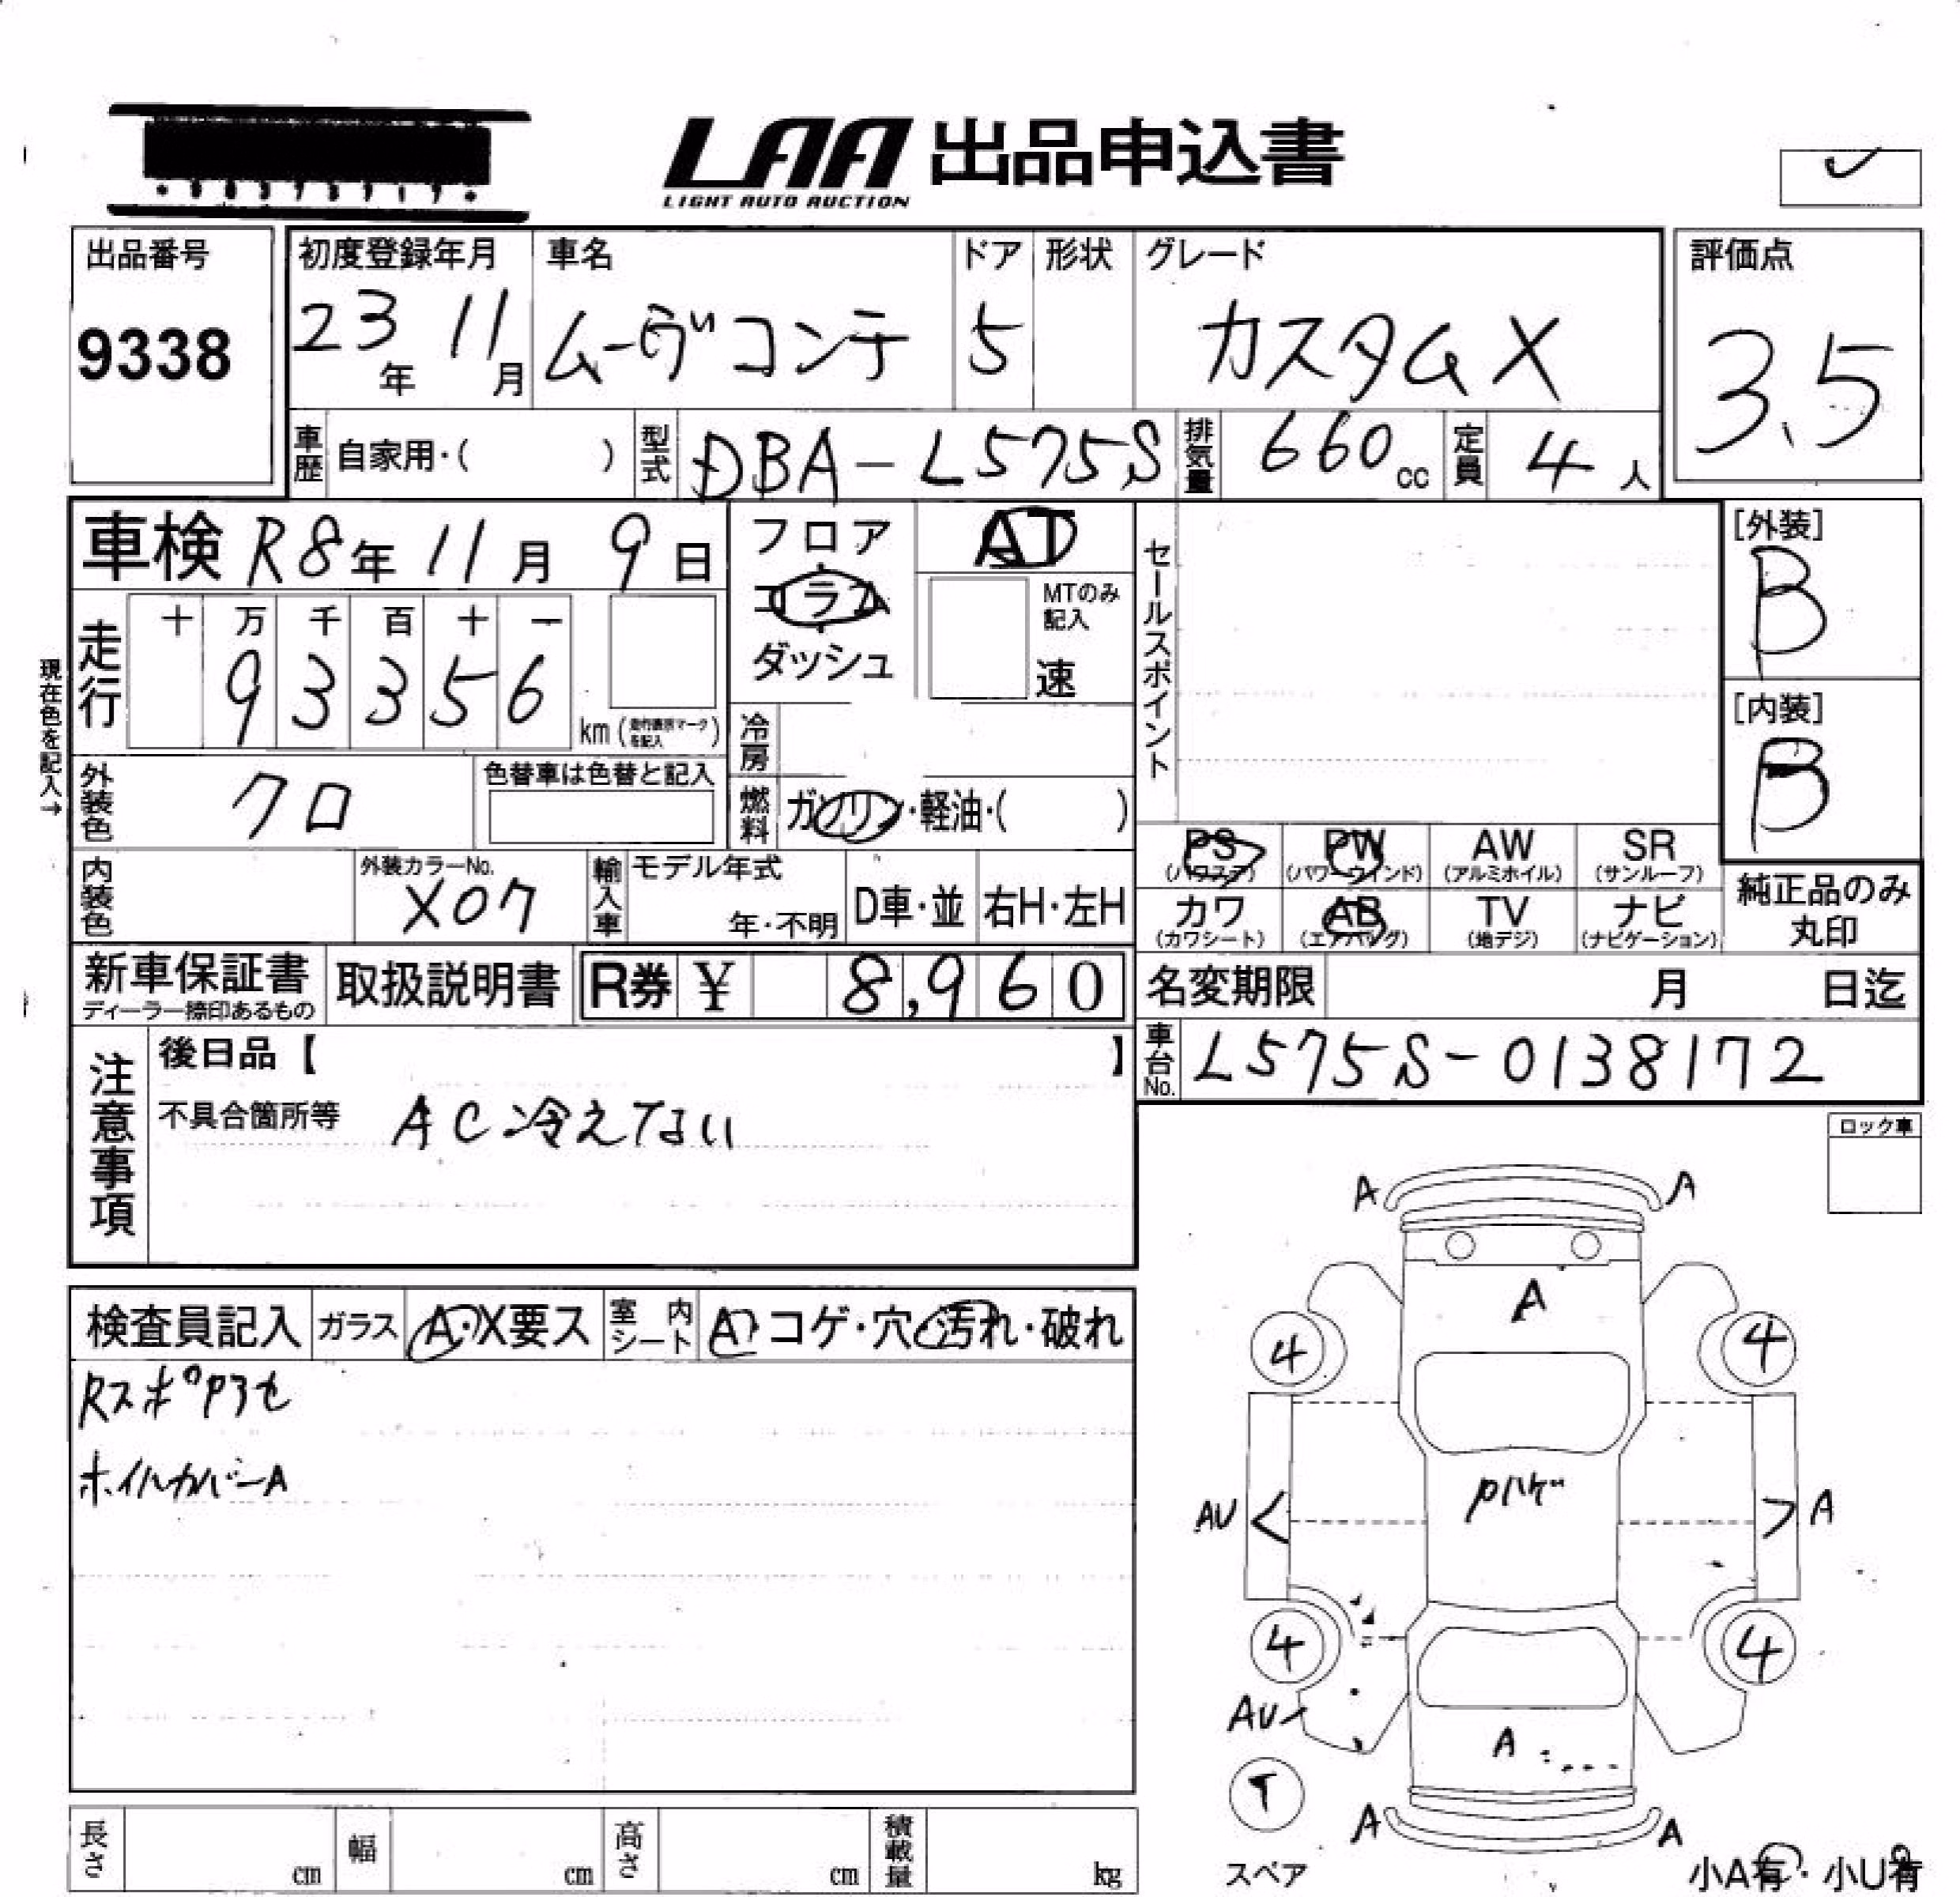 LAA 出品申込書
LIGHT AUTO AUCTION
出品番号
9338
初度登録年月
23年 11月
車名
ムーヴコンテ
ドア
5
形状
グレード
カスタムX
評価点
3.5
車歴 自家用・( )
型式 DBA-L575S
排気量 660cc
定員 4人
車検 R8年 11月 9日
フロア
コラム
ダッシュ
AT
MTのみ記入
速
セールスポイント
[外装]
B
[内装]
B
現在色を記入→
走行
十 万 千 百 十 一
9 3 3 5 6
km (走行表示マークを記入)
冷房
外装色 クロ
色替車は色替と記入
燃料 ガソリン・軽油・( )
PS (パワステ)
PW (パワーウインド)
AW (アルミホイル)
SR (サンルーフ)
カワ (カワシート)
AB (エアバッグ)
TV (地デジ)
ナビ (ナビゲーション)
純正品のみ
丸印
内装色
外装カラーNo.
X07
輸入車
モデル年式
年・不明
D車・並
右H・左H
新車保証書
ディーラー捺印あるもの
取扱説明書
R券 ¥ 8,960
名変期限 月 日迄
車台No. L575S-0138172
注意事項
後日品【 】
不具合箇所等 AC冷えてない
ロック車
検査員記入
ガラス A・X要ス
室内シート A・コゲ・穴・汚れ・破れ
RスポP3セ
ホイルカバーA
A A
A
4 4
AU A
Pハゲ
4 4
AU
A
T
A A
スペア
小A有・小U有
長さ cm
幅 cm
高さ cm
積載量 kg